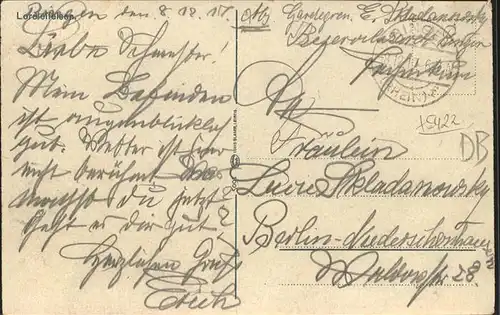 Loreleifelsen
Bingen den 8.12.17.
Liebe Schwester!
Mein Befinden
ist augenblicklich
gut. Wetter ist hier
nicht berühmt. Was
machst du jetzt?
Geht es Dir gut?
Herzlichen Gruß
Erich
Abs. Gardegren. E. Skladanowsky
Reservelazarett Bingen
Technikum
BINGEN
(RHEIN)
An
Fräulein
Lucie Skladanowsky
Berlin-Niederschönhausen
Waldowstr 28
+5422
DB